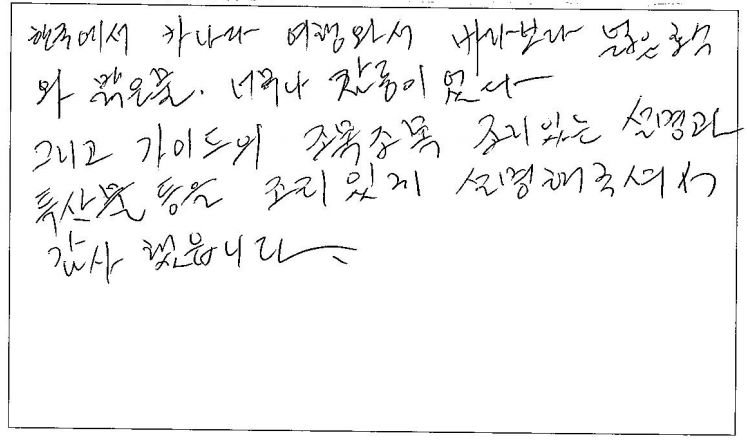 한국에서 카나다 여행와서 바다보다 넓은 호수
와 맑은물. 너무나 감동이 었다
그리고 가이드의 조목조목 조리있는 설명과
특산물 등을 조리 있게 설명해주셔서
감사 했읍니다